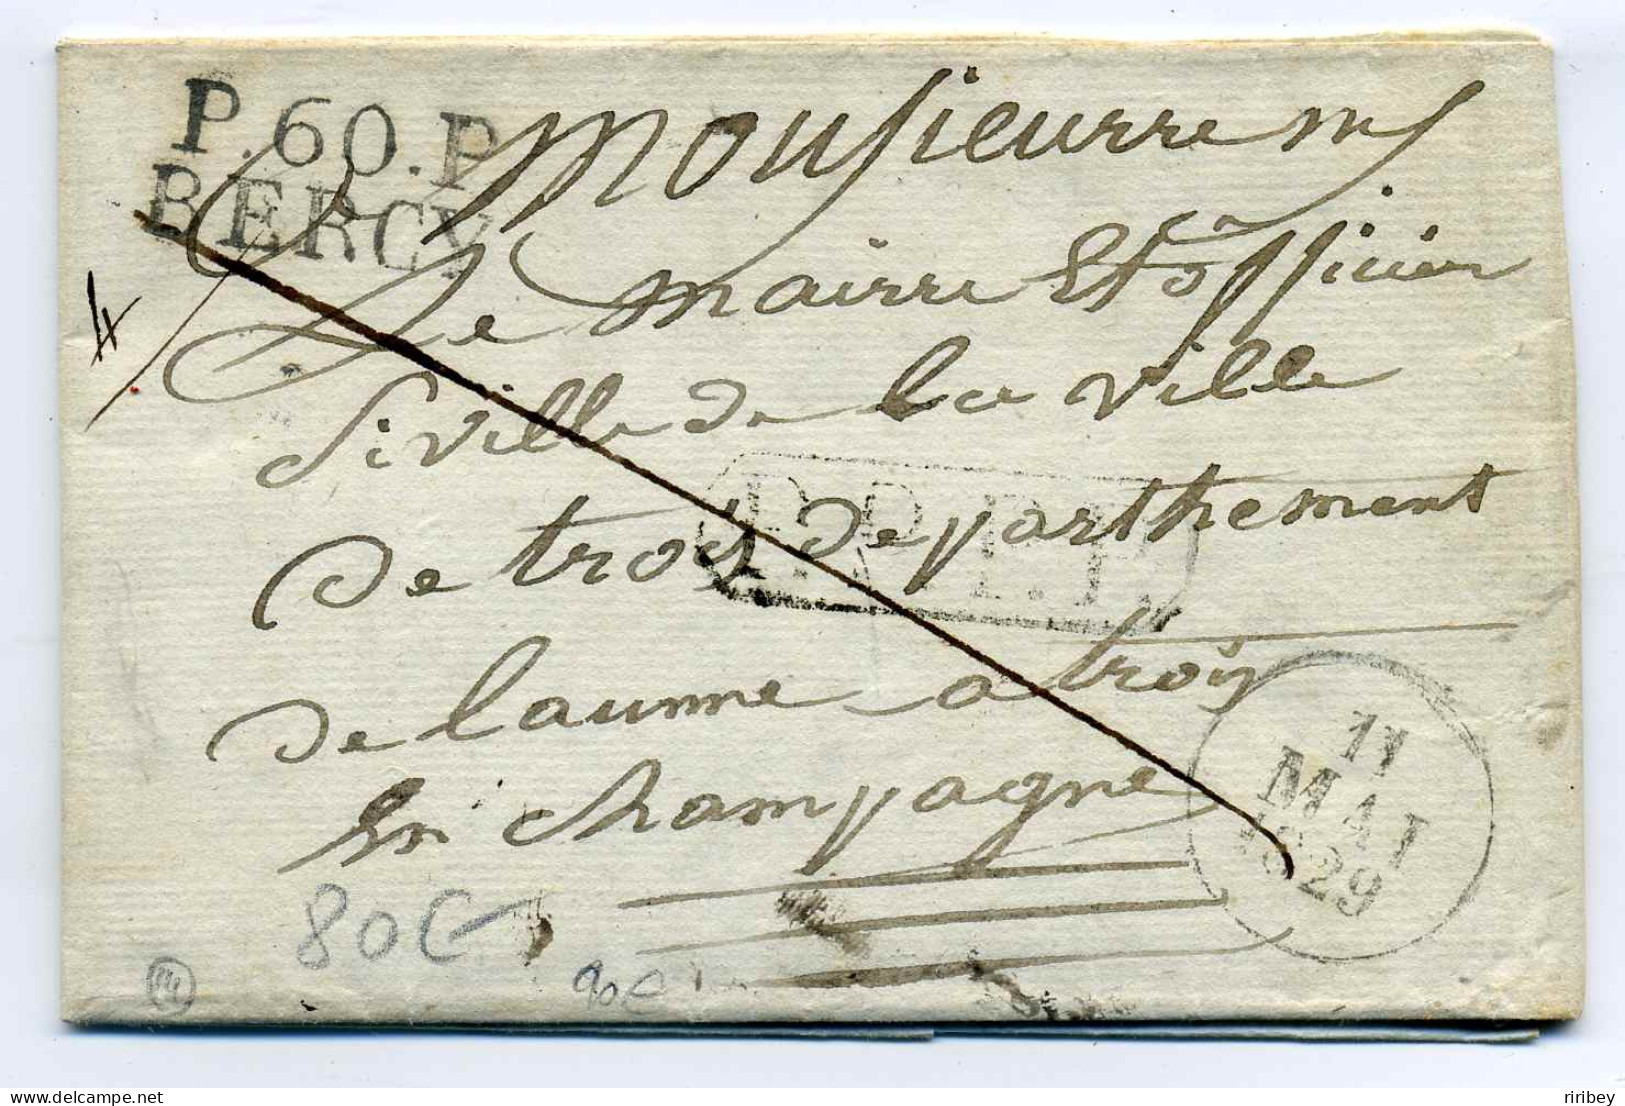 P.60.P
BERCY
Monsieurre
Le mairre Et officier
Siville de la ville
4
P.P.P.P.
De trois departhement
De laumne a troiÿ
En champagne
11
MAI
1829
80€
90€
delcampe.net
ribey